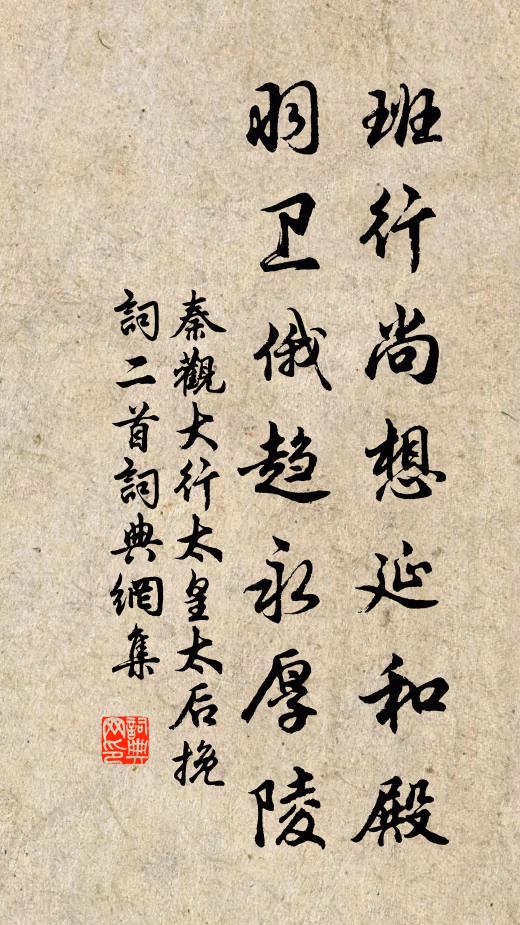 班行尚想延和殿
羽卫俄趋永厚陵
秦觀大行太皇太后挽
詞二首詞典網集
詞典
网印